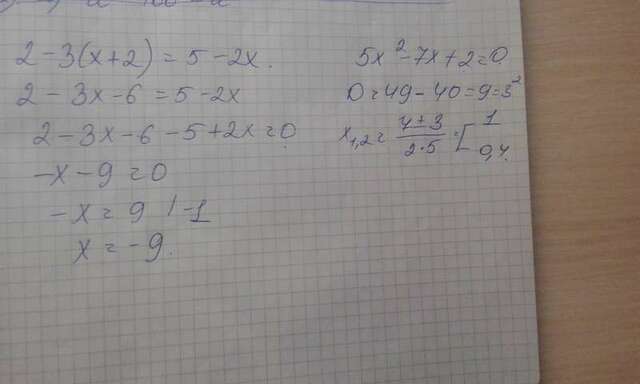 2 - 3(x+2) = 5 - 2x.
2 - 3x - 6 = 5 - 2x
2 - 3x - 6 - 5 + 2x = 0
-x - 9 = 0
-x = 9 | -1
x = -9.
5x² - 7x + 2 = 0
D = 49 - 40 = 9 = 3²
x₁,₂ = (7 ± 3)/(2·5) = [ 1
0,4.